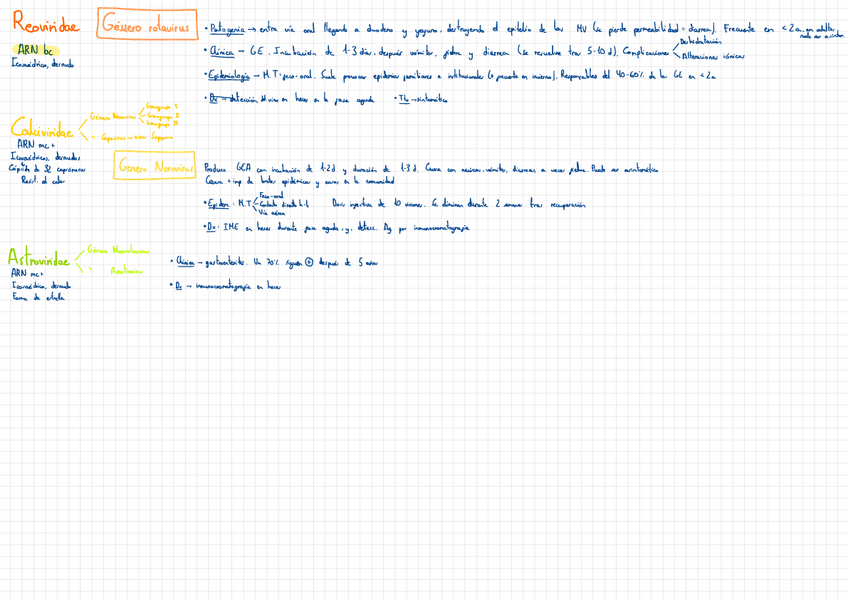 Reoviridae
Género rotavirus
ARN bc
Icosaédrico, desnudo
• Patogenia → entra vía oral llegando a duodeno y yeyuno, destruyendo el epitelio de las MV (se pierde permeabilidad = diarrea). Frecuente en < 2a, en adultos
suele ser asintom.
• Clínica → GE. Incubación de 1-3 días, después vómitos, fiebre y diarrea (se resuelve tras 5-10 d). Complicaciones
Deshidratación
Alteraciones iónicas
• Epidemiología → M.T: feco-oral. Suele provocar epidemias familiares e institucionales (+ frecuente en invierno). Responsables del 40-60% de las GE en < 2a
• Dx → detección del virus en heces en la fase aguda • Tto → sintomático
Calciviridae
Género Norovirus
Genogrupo I
Genogrupo II
" Sapovirus → virus Sapporo
ARN mc+
Icosaédricos, desnudos
Cápside de 32 capsómeros
Resist. al calor
Género Norovirus
Produce GEA con incubación de 1-2d y duración de 1-3 d. Cursa con náuseas, vómitos, diarreas a veces fiebre. Puede ser asintomática
Causa + imp de brotes epidémicos y casos en la comunidad
• Epidem: M.T
Feco-oral
Contacto directo h-h
Vía aérea
Dosis infectiva de 10 viriones. Se elimina durante 2 semanas tras recuperación
• Dx: IME en heces durante fase aguda y detecc. Ag por inmunocromatografía
Astroviridae
Género Mamastrovirus
" Avastrovirus
ARN mc+
Icosaédrico, desnudo
Forma de estrella
• Clínica → gastroenteritis. Un 70% siguen + después de 5 años
• Dx → inmunocromatografía en heces